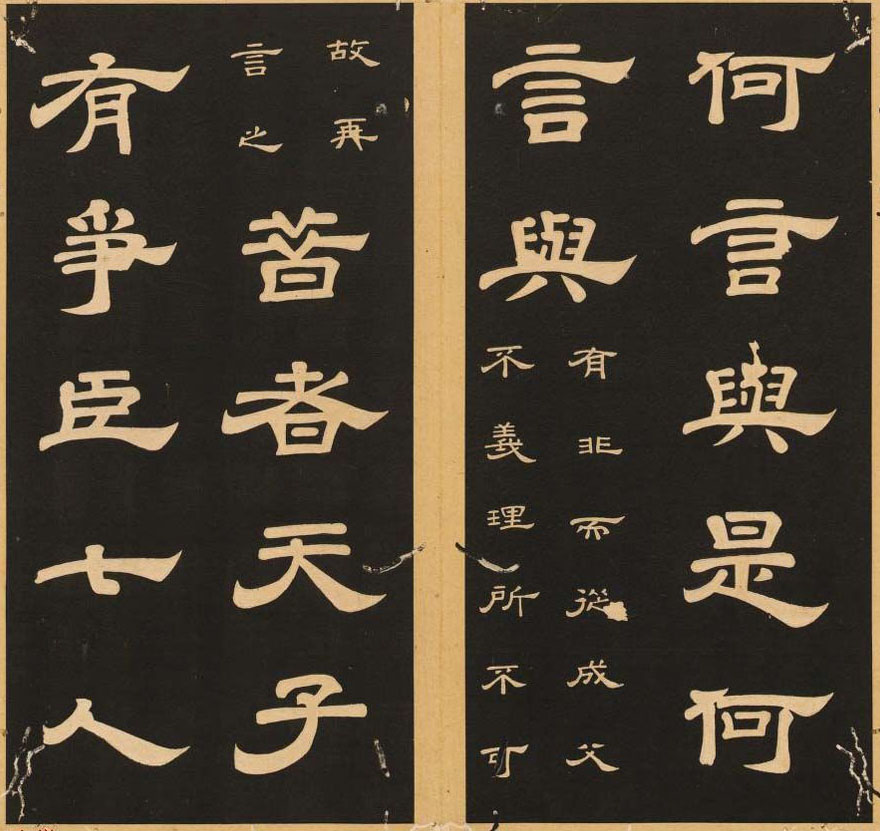 何言與是何
言與
有非而從成父
不義理所不可
故再
言之
昔者天子
有爭臣七人